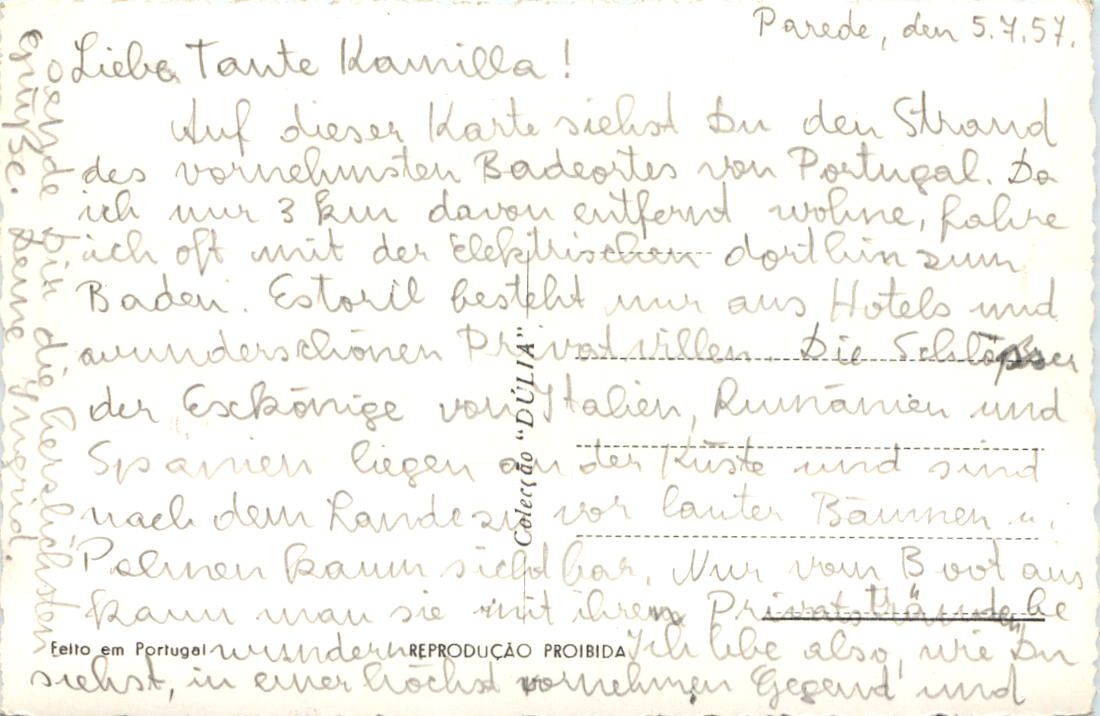 Parede, den 5.7.57.
Liebe Tante Kamilla!
Auf dieser Karte siehst Du den Strand
des vornehmsten Badeortes von Portugal. Da
ich nur 3 km davon entfernt wohne, fahre
ich oft mit der Elektrischen dorthin zum
Baden. Estoril besteht nur aus Hotels und
wunderschönen Privatvillen. Die Schlösser
der Exkönige von Italien, Rumänien und
Spanien liegen an der Küste und sind
nach dem Lande zu vor lauter Bäumen u.
Palmen kaum sichtbar. Nur vom Boot aus
kann man sie mit ihren "Privatstränden" be
wundern. Ich lebe also, wie Du
siehst, in einer höchst vornehmen Gegend und
sende Dir die herzlichsten
Grüße. Deine Ingrid.
Colecção "DÚLIA"
Feito em Portugal
REPRODUÇÃO PROIBIDA